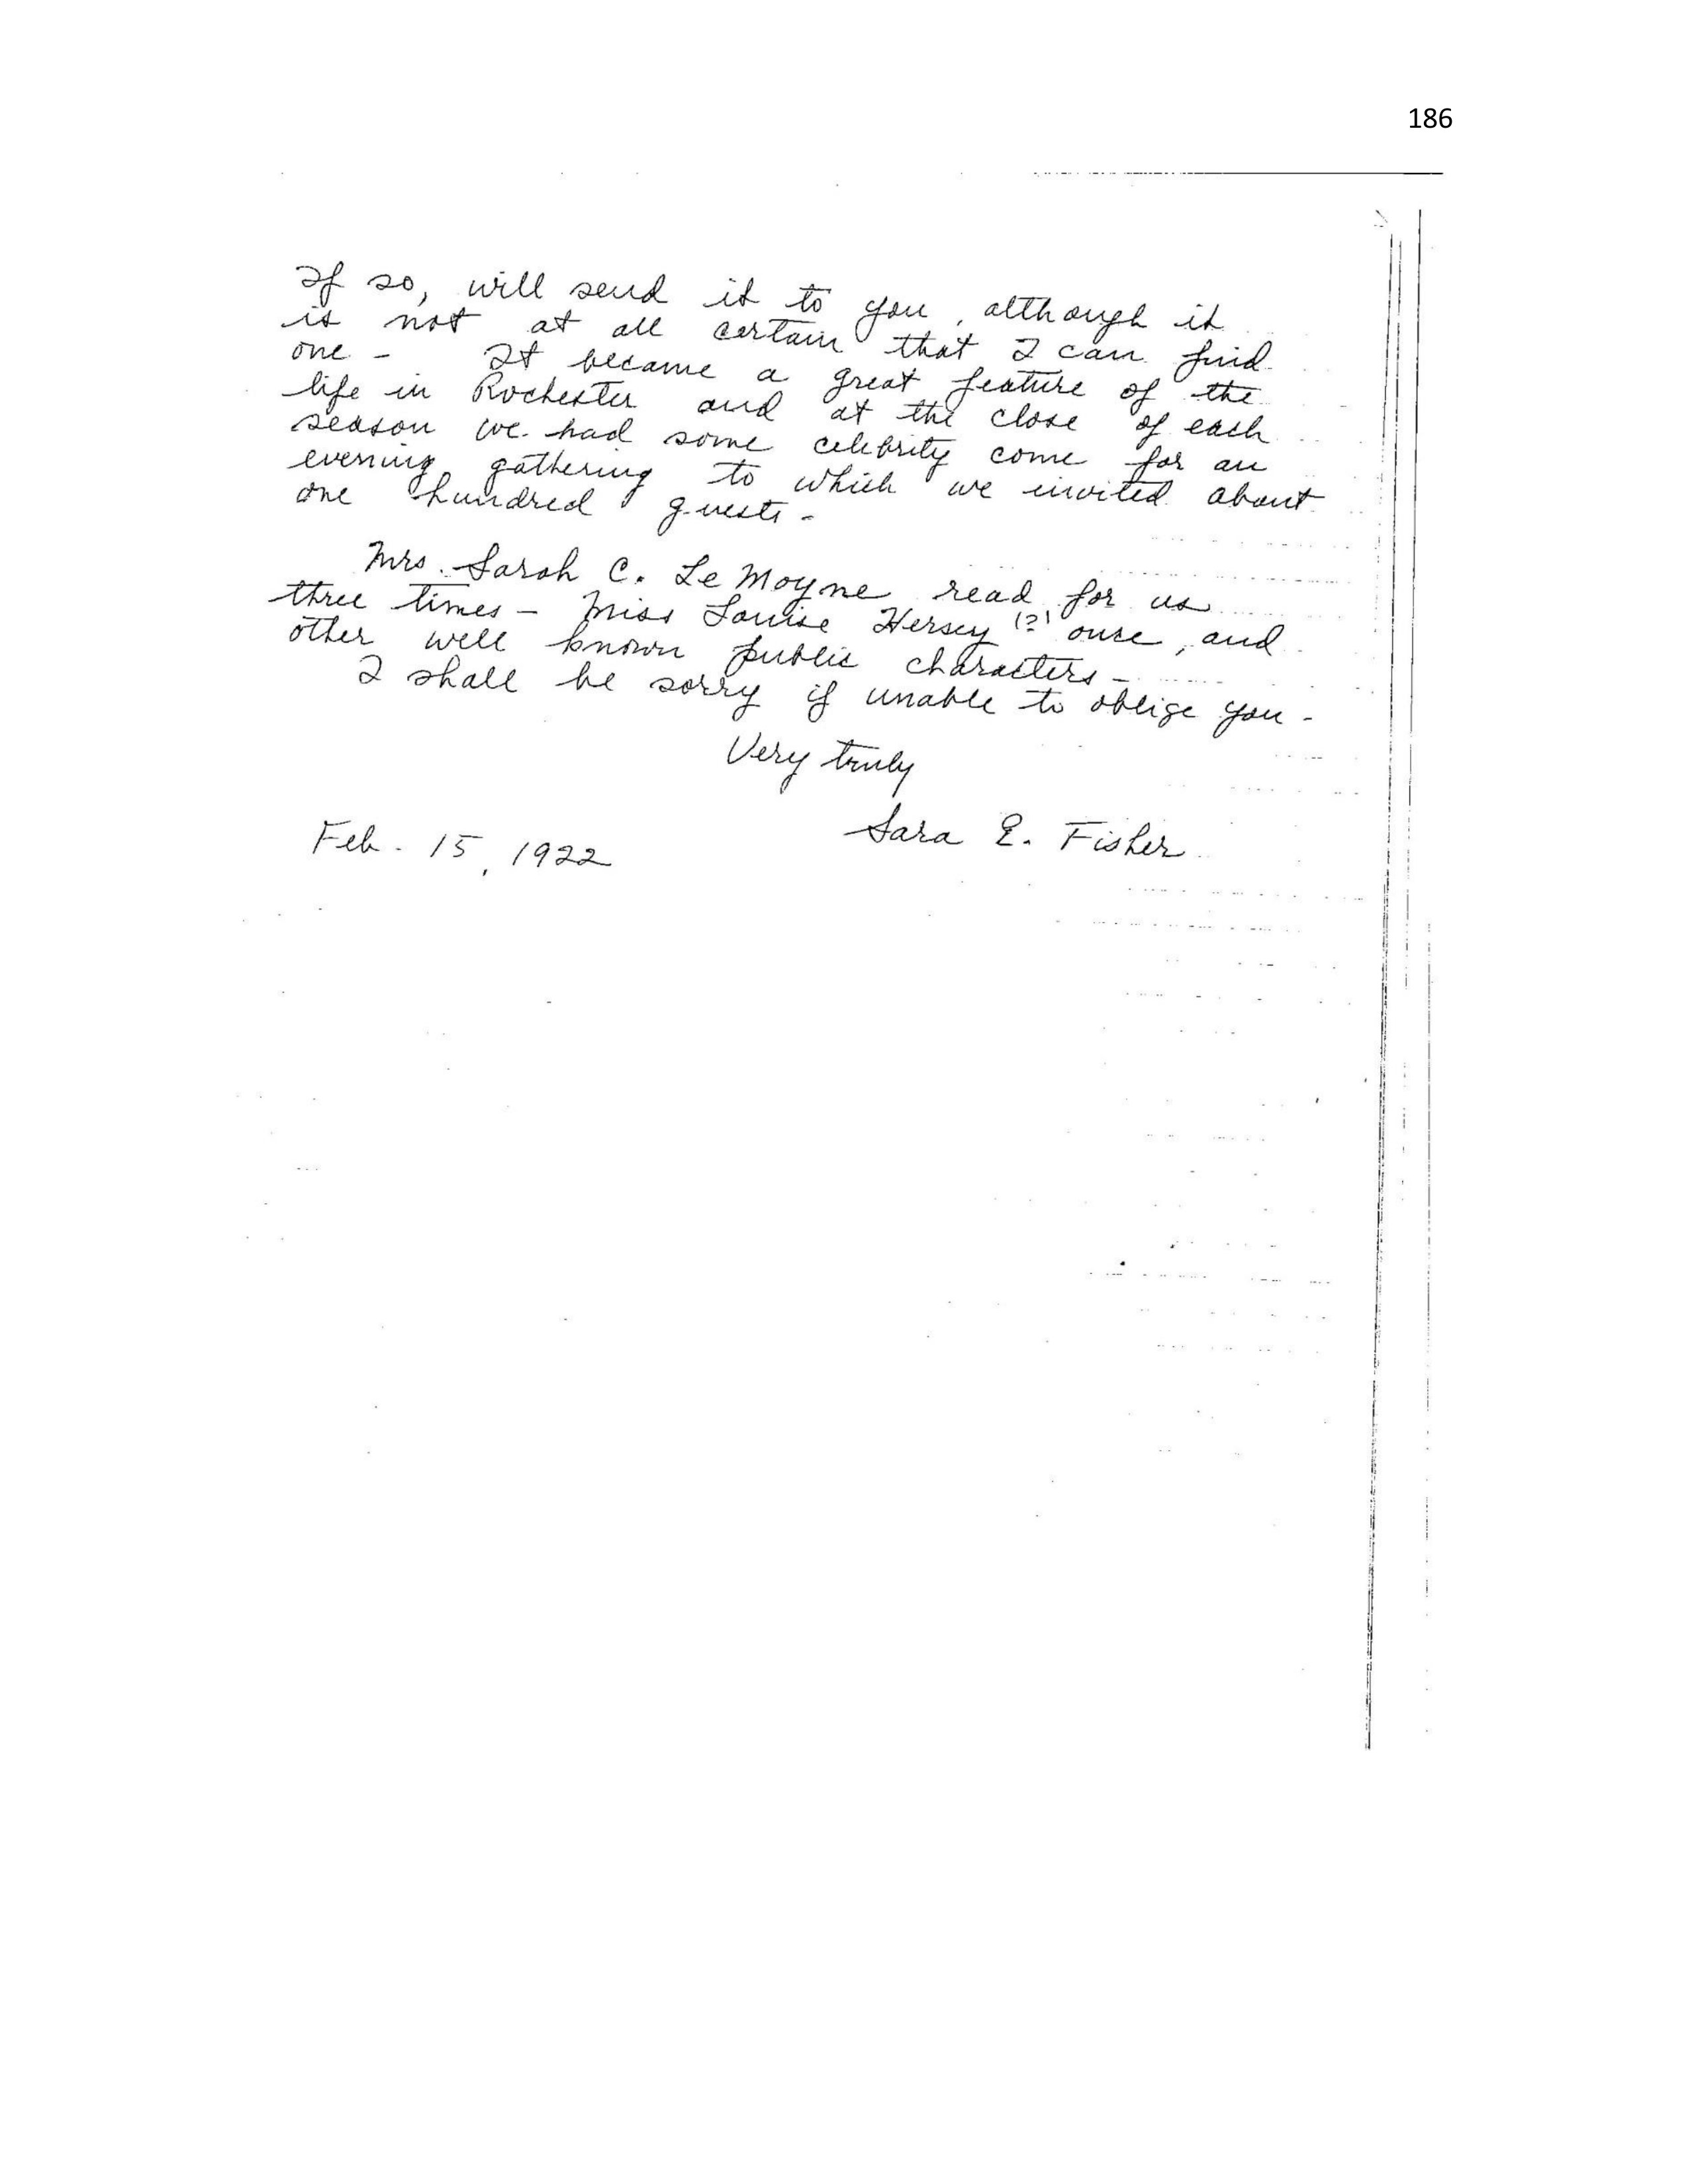 186
If so, will send it to you, although it
is not at all certain that I can find
one - It became a great feature of the
life in Rochester and at the close of each
season we had some celebrity come for an
evening gathering to which we invited about
one hundred guests -
Mrs. Sarah C. Le Moyne read for us
three times - Miss Louise Hersey (?) once, and
other well known public characters -
I shall be sorry if unable to oblige you -
Very truly
Sara E. Fisher
Feb. 15, 1922